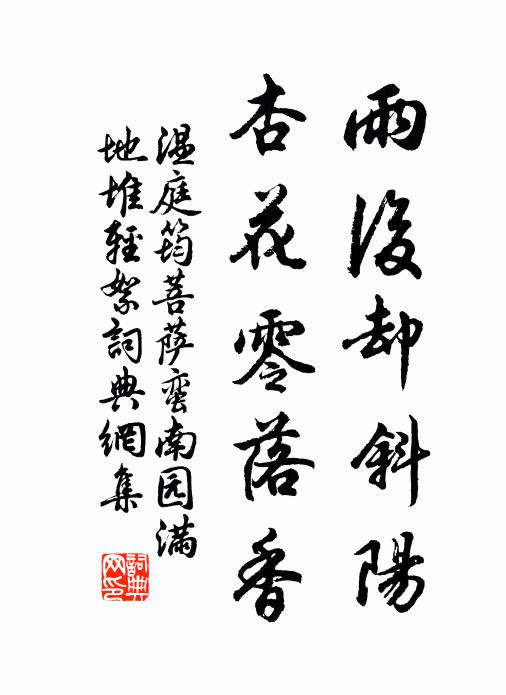 雨後却斜陽
杏花零落香
温庭筠菩萨蛮南园滿
地堆輕絮詞典網集
詞典网印